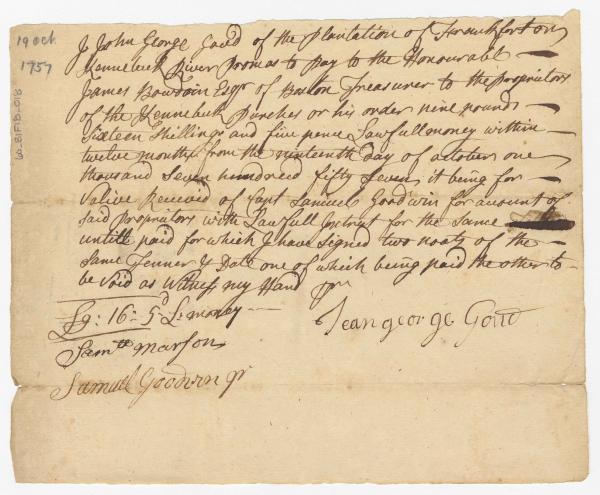 19 Oct.
1757
I John George Goud of the plantation of Frankfort on
Kennebeck River promas to pay to the Honourable
James Bowdoin Esqr of Boston Treasurer to the proprietors
of the Kennebeck Purches or his order nine pounds
Sixteen Shillings and five pence Lawfull money within
twelve months from the nineteenth day of october one
thousand Seven hundreed fifty Seven it being for
Valine Received of Capt Samuel Goodwin for amount of
said proprietors with Lawfull Intrust for the Same
untill paid for which I have Signed two noats of the
Same Tenner & Date one of which being paid the other to
be Void as Witness my Hand
£9: 16: 5d L: money
Jean george Goud
Samll Marson
Samuel Goodwin jr